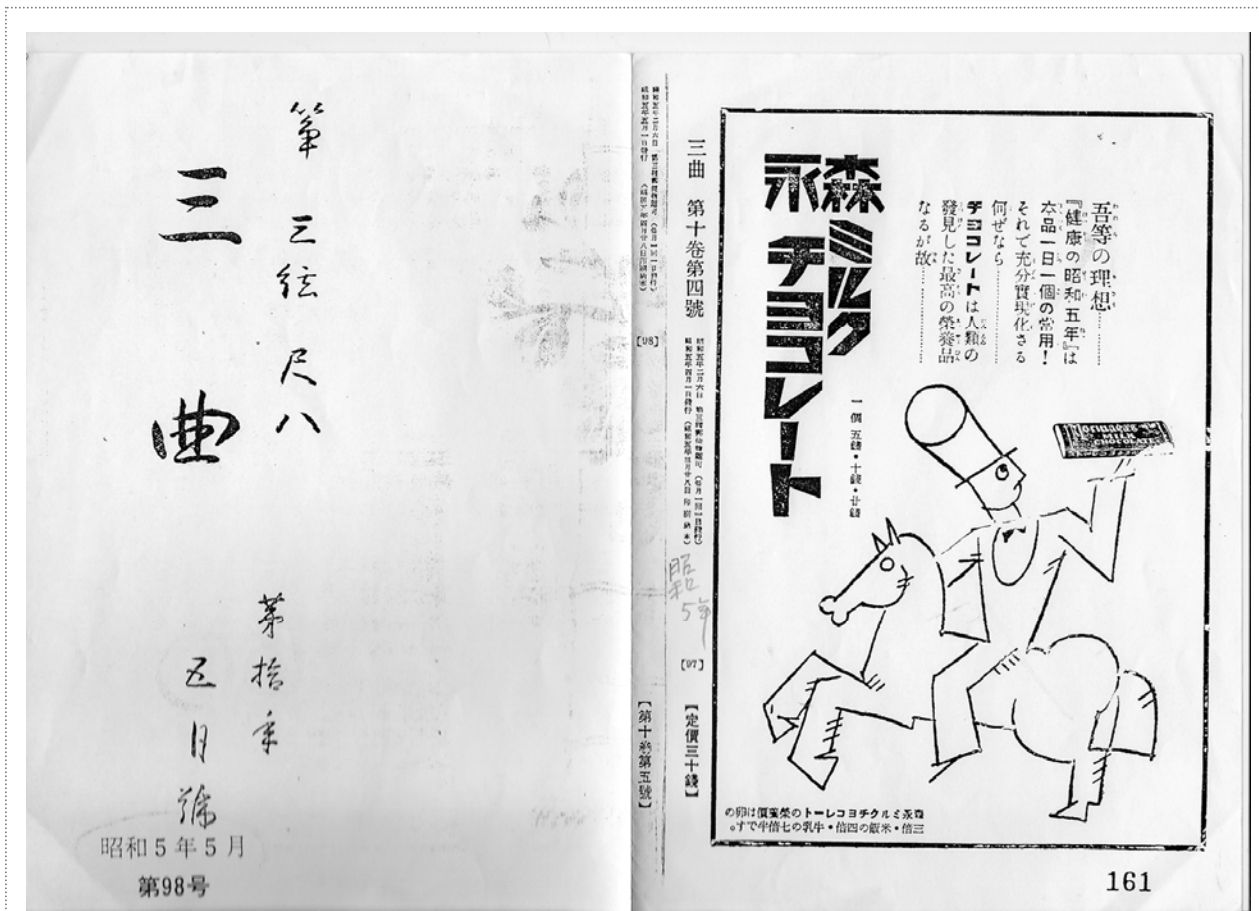 箏 三絃 尺八
三曲
第拾年
五月號
昭和5年5月
第98号
三曲 第十卷第四號
[98]
昭和
5年
[97]
【定價三十錢】
【第十卷第五號】
吾等の理想………
『健康の昭和五年』は
本品一日一個の常用!
それで充分實現化さる
何ぜなら…………
チヨコレートは人類の
發見した最高の榮養品
なるが故…………
森永
ミルク
チヨコレート
一個 五錢・十錢・廿錢
MILK
CHOCOLATE
森永ミルクチヨコレートの榮養價は卵の
三倍・米飯の四倍・牛乳の七倍半です。
161